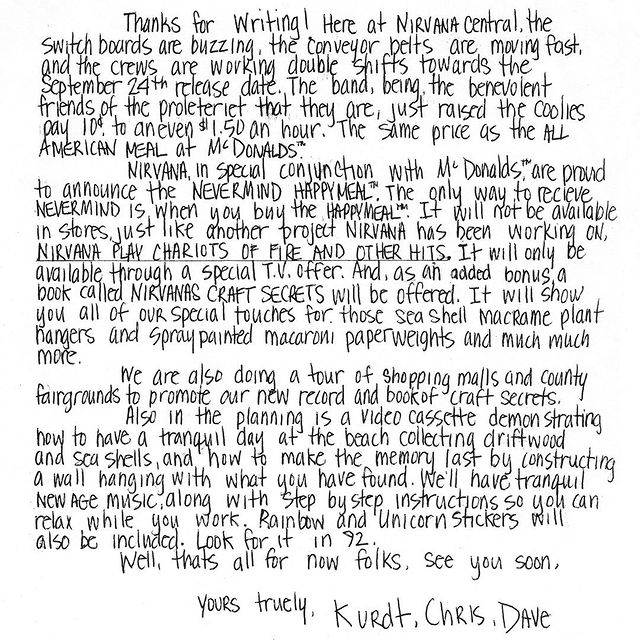 Thanks for Writing! Here at NIRVANA central, the
switch boards are buzzing, the conveyor belts are moving fast,
and the crews are working double shifts towards the
September 24th release date. The band, being the benevolent
friends of the proleteriet that they are, just raised the coolies
pay 10¢ to an even $1.50 an hour. The same price as the ALL
AMERICAN MEAL at McDONALDS™
NIRVANA, in special conjunction with McDonalds,™ are proud
to announce the NEVERMIND HAPPYMEAL™. The only way to recieve
NEVERMIND is, when you buy the HAPPYMEAL™. It will not be available
in stores, just like another project NIRVANA has been working on,
NIRVANA PLAY CHARIOTS OF FIRE AND OTHER HITS. It will only be
available through a special T.V. offer. And, as an added bonus, a
book called NIRVANAS CRAFT SECRETS will be offered. It will show
you all of our special touches for those sea shell macrame plant
hangers and spray painted macaroni paperweights and much much
more.
We are also doing a tour of shopping malls and county
fairgrounds to promote our new record and book of craft secrets.
Also in the planning is a video cassette demonstrating
how to have a tranquil day at the beach collecting driftwood
and sea shells, and how to make the memory last by constructing
a wall hanging with what you have found. We'll have tranquil
NEW AGE MUSIC, along with step by step instructions so you can
relax while you work. Rainbow and Unicorn stickers will
also be included. Look for it in 92.
Well, thats all for now folks, see you soon,
yours truely, Kurdt, Chris, DAVE